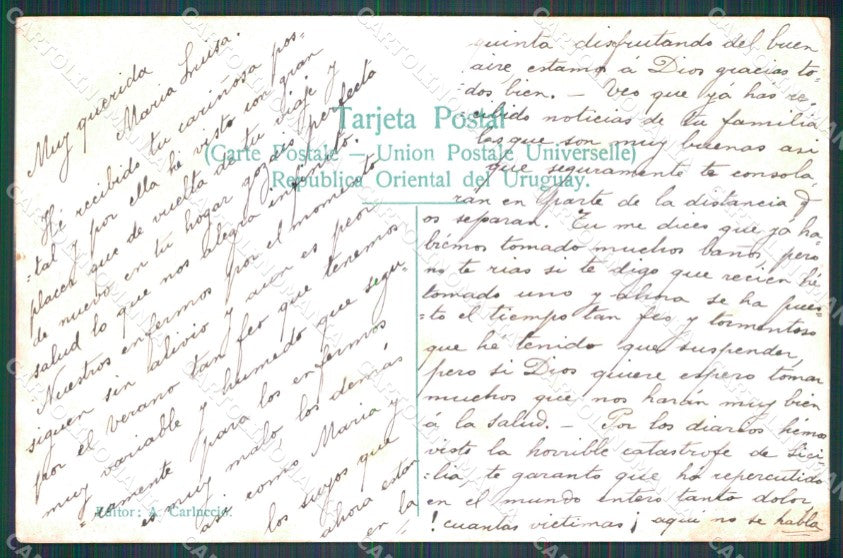 Muy querida
Maria Luisa.
Hé recibido tu cariñosa pos-
-tal y por ella hé visto con gran
placer que de vuelta de tu viaje y
de nuevo en tu hogar gozais perfecta
salud lo que nos alegra infinito.
Nuestros enfermos por el momento
siguen sin alivio y aún es peor
por el verano tan feo que tenemos
muy variable y humedo que segu-
-ramente para los enfermos
es muy malo, los demás
asi como Maria y
los suyos que
ahora estan
en la
quinta disfrutando del buen
aire estamos á Dios gracias to-
dos bien. — Veo que yá has re-
cibido noticias de tu familia
las que son muy buenas asi
que seguramente te consola-
ran en parte de la distancia q
os separan. Tu me dices que ya ha-
brémos tomado muchos baños, pero
no te rias si te digo que recien hé
tomado uno y ahora se ha pues-
-to el tiempo tan feo y tormentoso
que hé tenido que suspender,
pero si Dios quiere espero tomar
muchos que nos harán muy bien
á la salud. — Por los diarios hemos
visto la horrible catastrofe de Sici-
-lia, te garanto que ha repercutido
en el mundo entero tanto dolor
! cuantas victimas ¡ aqui no se habla
Tarjeta Postal
(Carte Postale — Union Postale Universelle)
Republica Oriental del Uruguay.
Editor: A. Carluccio.
CARTOLINOMANIA